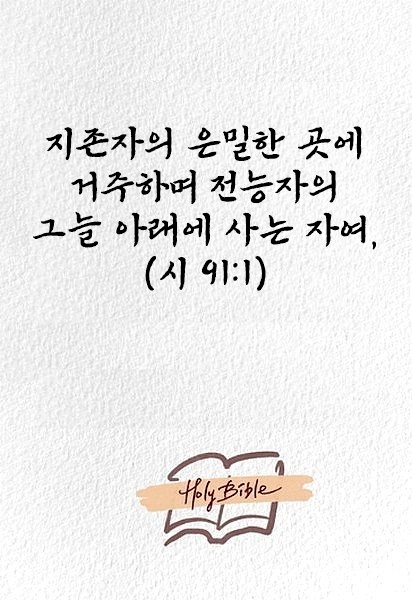 지존자의 은밀한 곳에
거주하며 전능자의
그늘 아래에 사는 자여,
(시 91:1)
Holy Bible